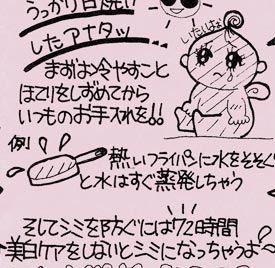 うっかり日焼け
したアナタッ
いたいよぉ
まずはお冷やすこと
ほてりをしずめてから
いつものお手入れを!!
例)
熱いフライパンに水をそそぐ
と水はすぐ蒸発しちゃう
そしてシミを防ぐには72時間
美白ケアをしないとシミになっちゃうよ〜